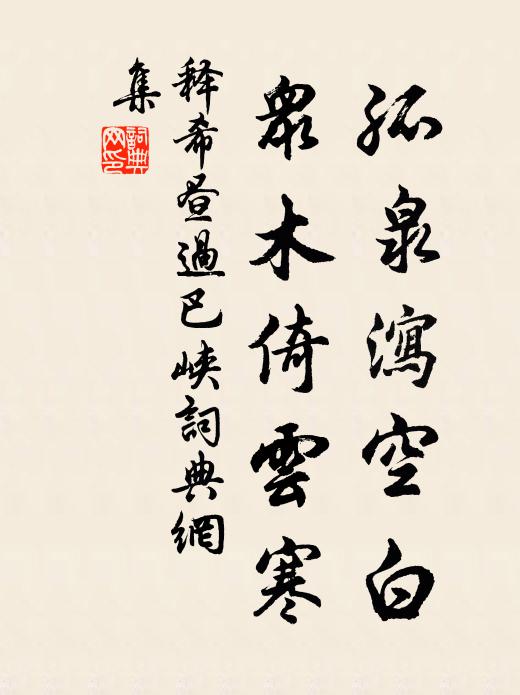 孤泉瀉空白
眾木倚雲寒
释希昼過巴峽詞典網
集
詞典
网印